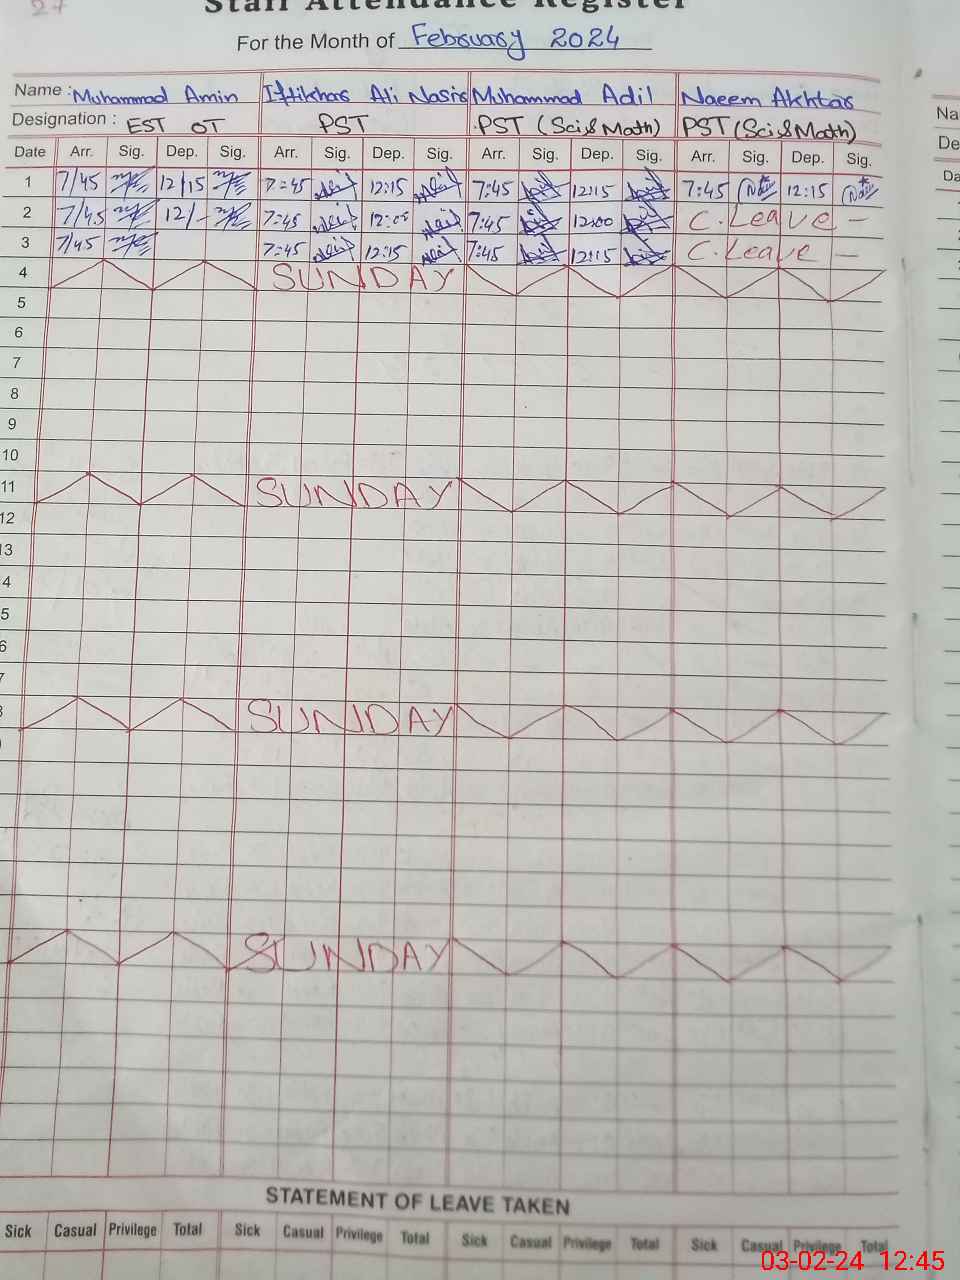 27
Staff Attendance Register
For the Month of February 2024
Name : Muhammad Amin Iftikhar Ali Nasir Muhammad Adil Naeem Akhtar
Designation : EST OT PST PST (Sci & Math) PST (Sci & Math)
Date Arr. Sig. Dep. Sig. Arr. Sig. Dep. Sig. Arr. Sig. Dep. Sig. Arr. Sig. Dep. Sig.
1 7/45 12/15 7:45 12:15 7:45 12:15 7:45 12:15
2 7/45 12/- 7:45 12:00 7:45 12:00 C.Leave -
3 7/45 7:45 12:15 7:45 12:15 C.Leave -
4 SUNDAY
5
6
7
8
9
10
11 SUNDAY
12
13
4
5
6
7
8 SUNDAY
SUNDAY
STATEMENT OF LEAVE TAKEN
Sick Casual Privilege Total Sick Casual Privilege Total Sick Casual Privilege Total Sick Casual Privilege Total
03-02-24 12:45
Na
De
Da